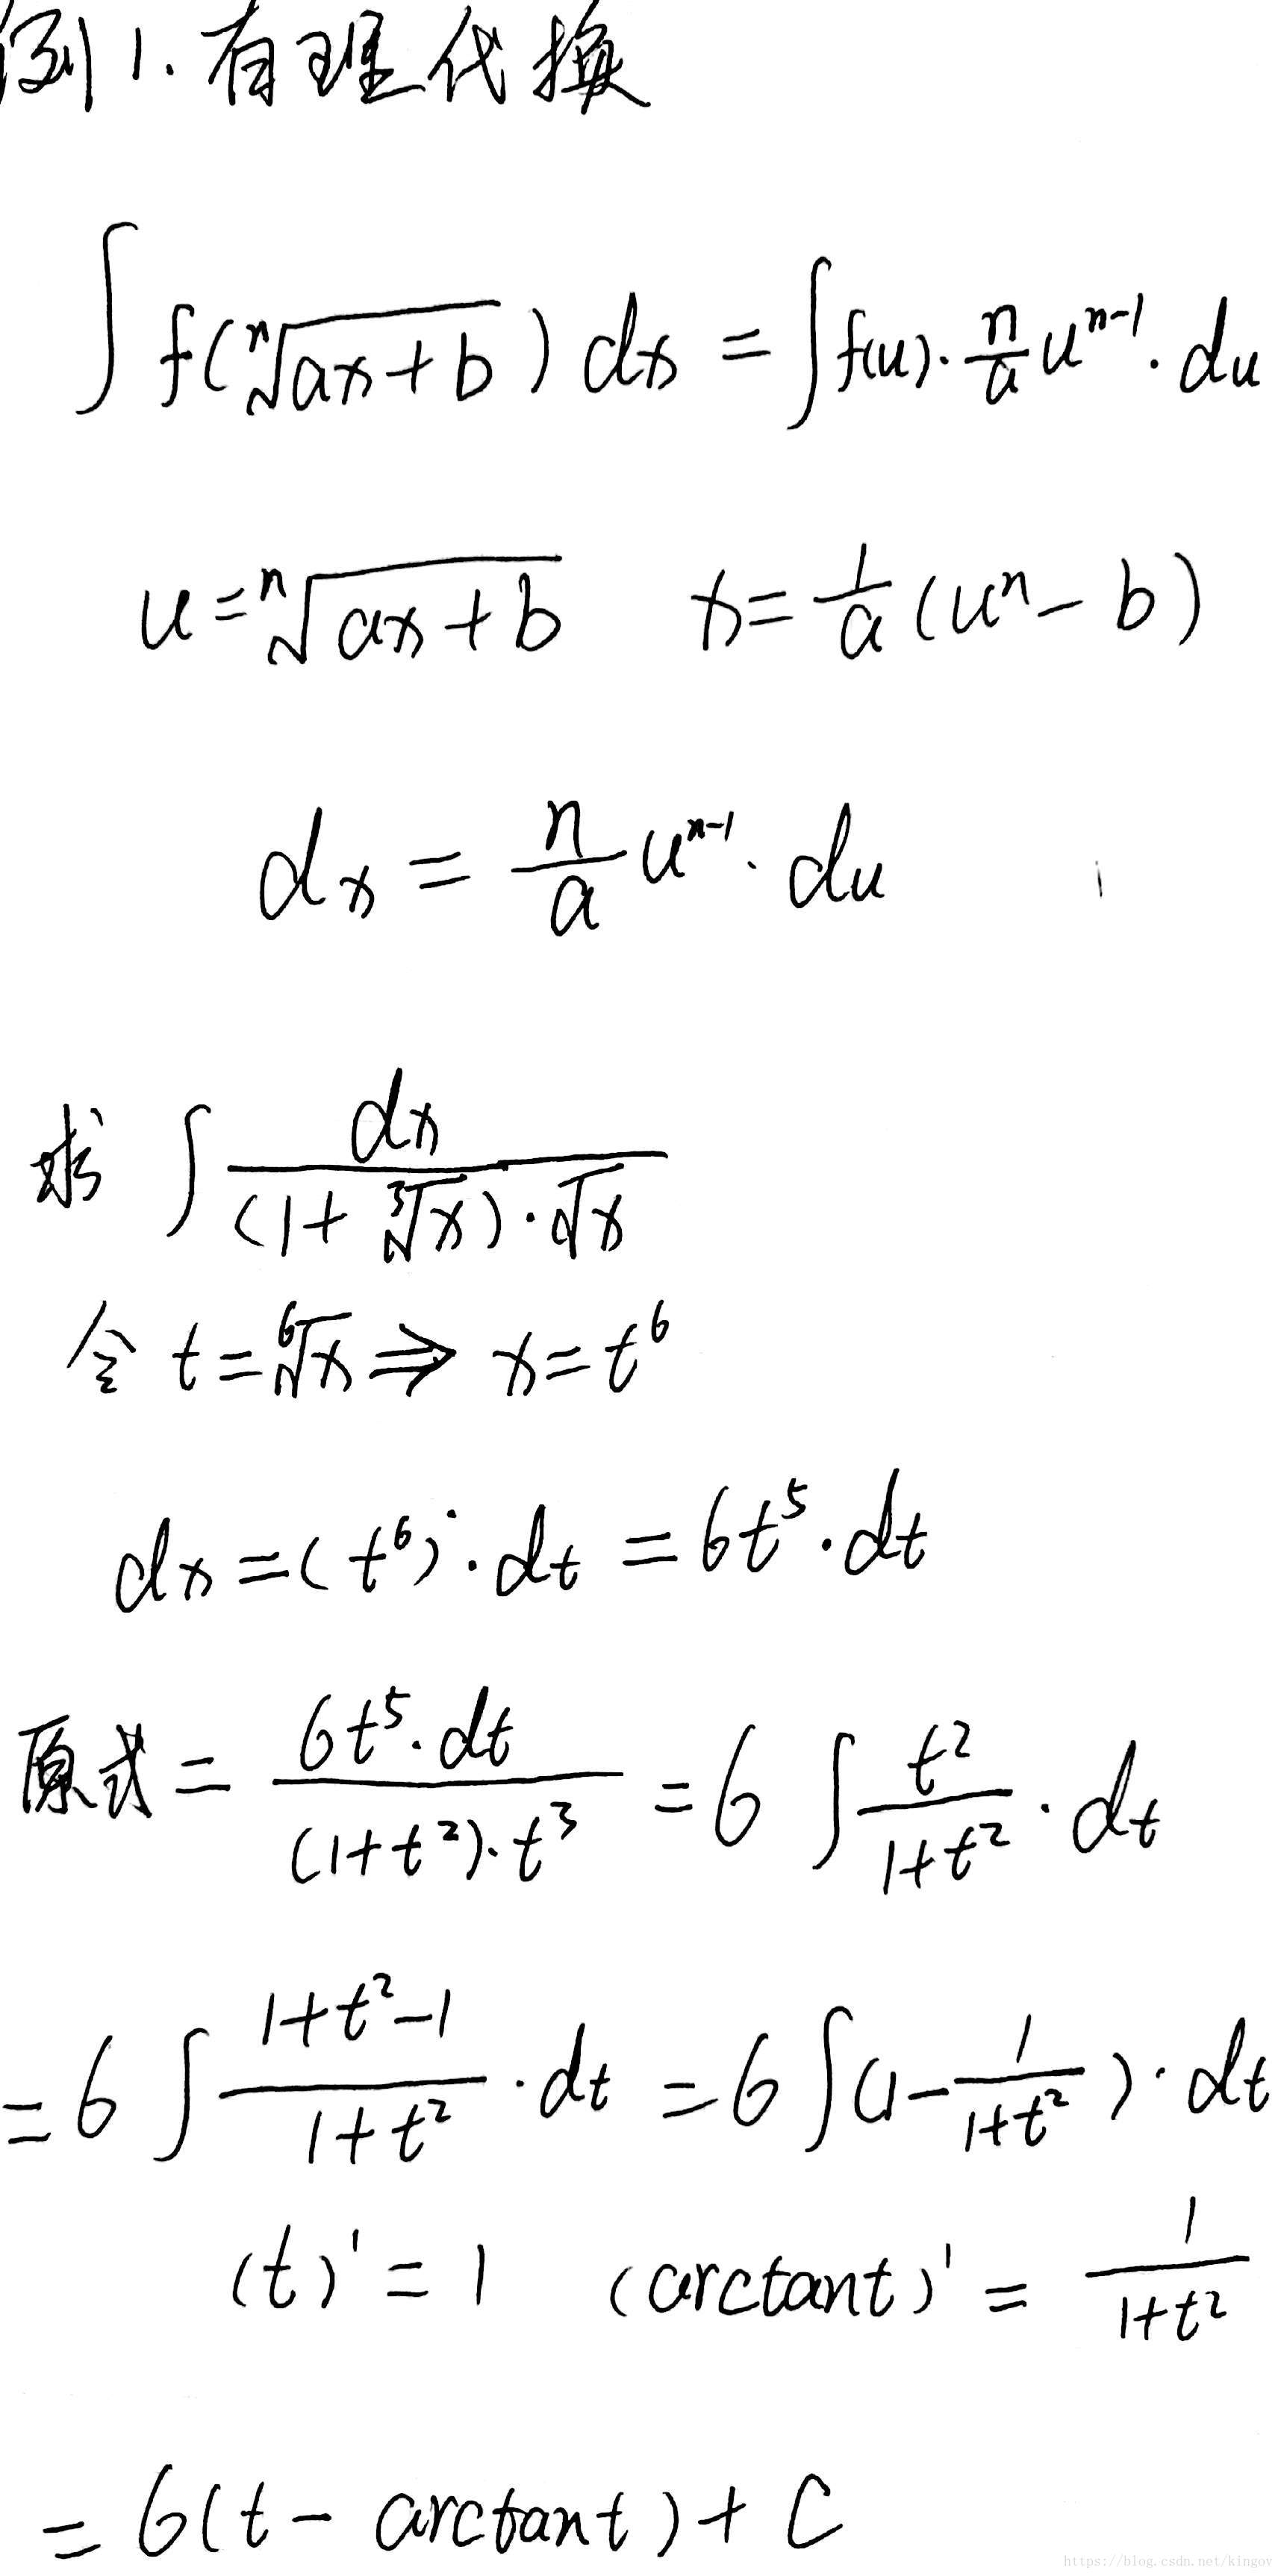 例1.有理代换
∫ f(ⁿ√(ax+b)) dx = ∫ f(u)·(n/a)uⁿ⁻¹·du
u=ⁿ√(ax+b)  x=(1/a)(uⁿ-b)
dx = (n/a)uⁿ⁻¹·du
求 ∫ dx/((1+³√x)·√x)
令 t=⁶√x ⇒ x=t⁶
dx=(t⁶)'·dt=6t⁵·dt
原式= 6t⁵·dt/((1+t²)·t³) =6 ∫ t²/(1+t²)·dt
=6 ∫ (1+t²-1)/(1+t²)·dt =6 ∫(1-1/(1+t²))·dt
(t)'=1  (arctant)'= 1/(1+t²)
=6(t-arctant)+C
https://blog.csdn.net/kingov